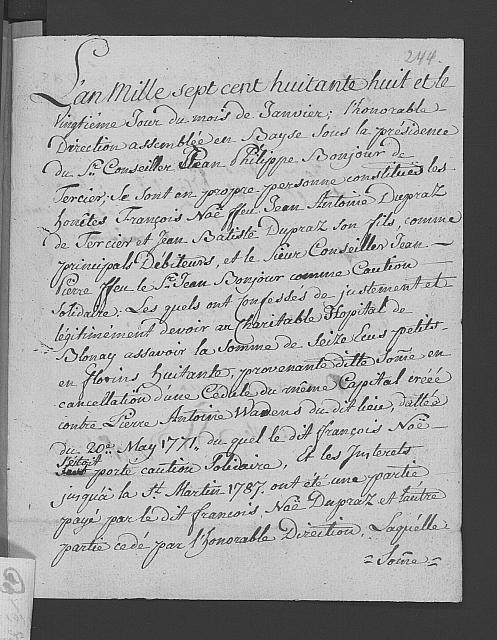 244.
L'an Mille sept cent huitante huit et le
Vingtiéme Jour du mois de Janvier; l'honorable
Direction assemblée en Bayse sous la présidence
du Sr. Conseiller Jean Philippe Bonjour de
Tercier; Se sont en propre personne constitués les
honêtes François Noé ffeu Jean Antoine Dupraz
de Tercier et Jean Batiste Dupraz son fils, comme
principals Débiteurs, et le Sieur Conseiller Jean-
Pierre ffeu le Sr. Jean Bonjour comme Caution
Solidaire; Les quels ont confessés de justement et
légitimément devoir au Charitable Hopital de
Blonay assavoir la Somme de Seize Ecus petits
en florins huitante, provenante ditte Some en
cancellation d'une Cédule du même Capital créée
contre Pierre Antoine Wadens du dit lieu, dattée
du 20e. May 1771. du quel le dit françois Noé
s'étoit porté caution Solidaire, Et les Interets
jusqu'à la St. Martin 1787. ont été une partie
payé par le dit françois Noé Dupraz et l'autre
partie cedé par l'honorable Direction, Laquélle
= Some =